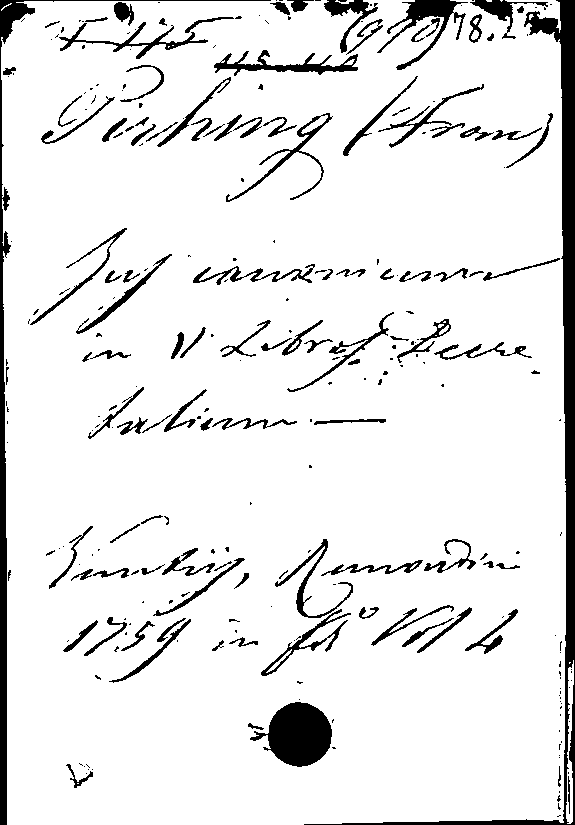 T. 175 (970) 78.2
45.42
Pirhing (Fran)
Jus canonicum
in V Libros Decre
talium —
Venetiis, Remondini
1759 in fol° Vol 4